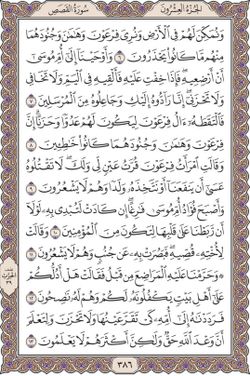 الجزء العشرون
سورة القصص
وَنُمَكِّنَ لَهُمْ فِي ٱلْأَرْضِ وَنُرِيَ فِرْعَوْنَ وَهَٰمَٰنَ وَجُنُودَهُمَا
مِنْهُم مَّا كَانُوا۟ يَحْذَرُونَ ٦ وَأَوْحَيْنَآ إِلَىٰٓ أُمِّ مُوسَىٰٓ
أَنْ أَرْضِعِيهِ ۖ فَإِذَا خِفْتِ عَلَيْهِ فَأَلْقِيهِ فِي ٱلْيَمِّ وَلَا تَخَافِي
وَلَا تَحْزَنِيٓ ۖ إِنَّا رَآدُّوهُ إِلَيْكِ وَجَاعِلُوهُ مِنَ ٱلْمُرْسَلِينَ ٧
فَٱلْتَقَطَهُۥٓ ءَالُ فِرْعَوْنَ لِيَكُونَ لَهُمْ عَدُوًّا وَحَزَنًا ۗ إِنَّ
فِرْعَوْنَ وَهَٰمَٰنَ وَجُنُودَهُمَا كَانُوا۟ خَٰطِـِٔينَ ٨
وَقَالَتِ ٱمْرَأَتُ فِرْعَوْنَ قُرَّتُ عَيْنٍ لِّي وَلَكَ ۖ لَا تَقْتُلُوهُ
عَسَىٰٓ أَن يَنفَعَنَآ أَوْ نَتَّخِذَهُۥ وَلَدًا وَهُمْ لَا يَشْعُرُونَ ٩
وَأَصْبَحَ فُؤَادُ أُمِّ مُوسَىٰ فَٰرِغًا ۖ إِن كَادَتْ لَتُبْدِي بِهِۦ لَوْلَآ
أَن رَّبَطْنَا عَلَىٰ قَلْبِهَا لِتَكُونَ مِنَ ٱلْمُؤْمِنِينَ ١٠ وَقَالَتْ
لِأُخْتِهِۦ قُصِّيهِ ۖ فَبَصُرَتْ بِهِۦ عَن جُنُبٍ وَهُمْ لَا يَشْعُرُونَ ١١
وَحَرَّمْنَا عَلَيْهِ ٱلْمَرَاضِعَ مِن قَبْلُ فَقَالَتْ هَلْ أَدُلُّكُمْ
عَلَىٰٓ أَهْلِ بَيْتٍ يَكْفُلُونَهُۥ لَكُمْ وَهُمْ لَهُۥ نَٰصِحُونَ ١٢
فَرَدَدْنَٰهُ إِلَىٰٓ أُمِّهِۦ كَيْ تَقَرَّ عَيْنُهَا وَلَا تَحْزَنَ وَلِتَعْلَمَ
أَنَّ وَعْدَ ٱللَّهِ حَقٌّ وَلَٰكِنَّ أَكْثَرَهُمْ لَا يَعْلَمُونَ ١٣
٣٨٦